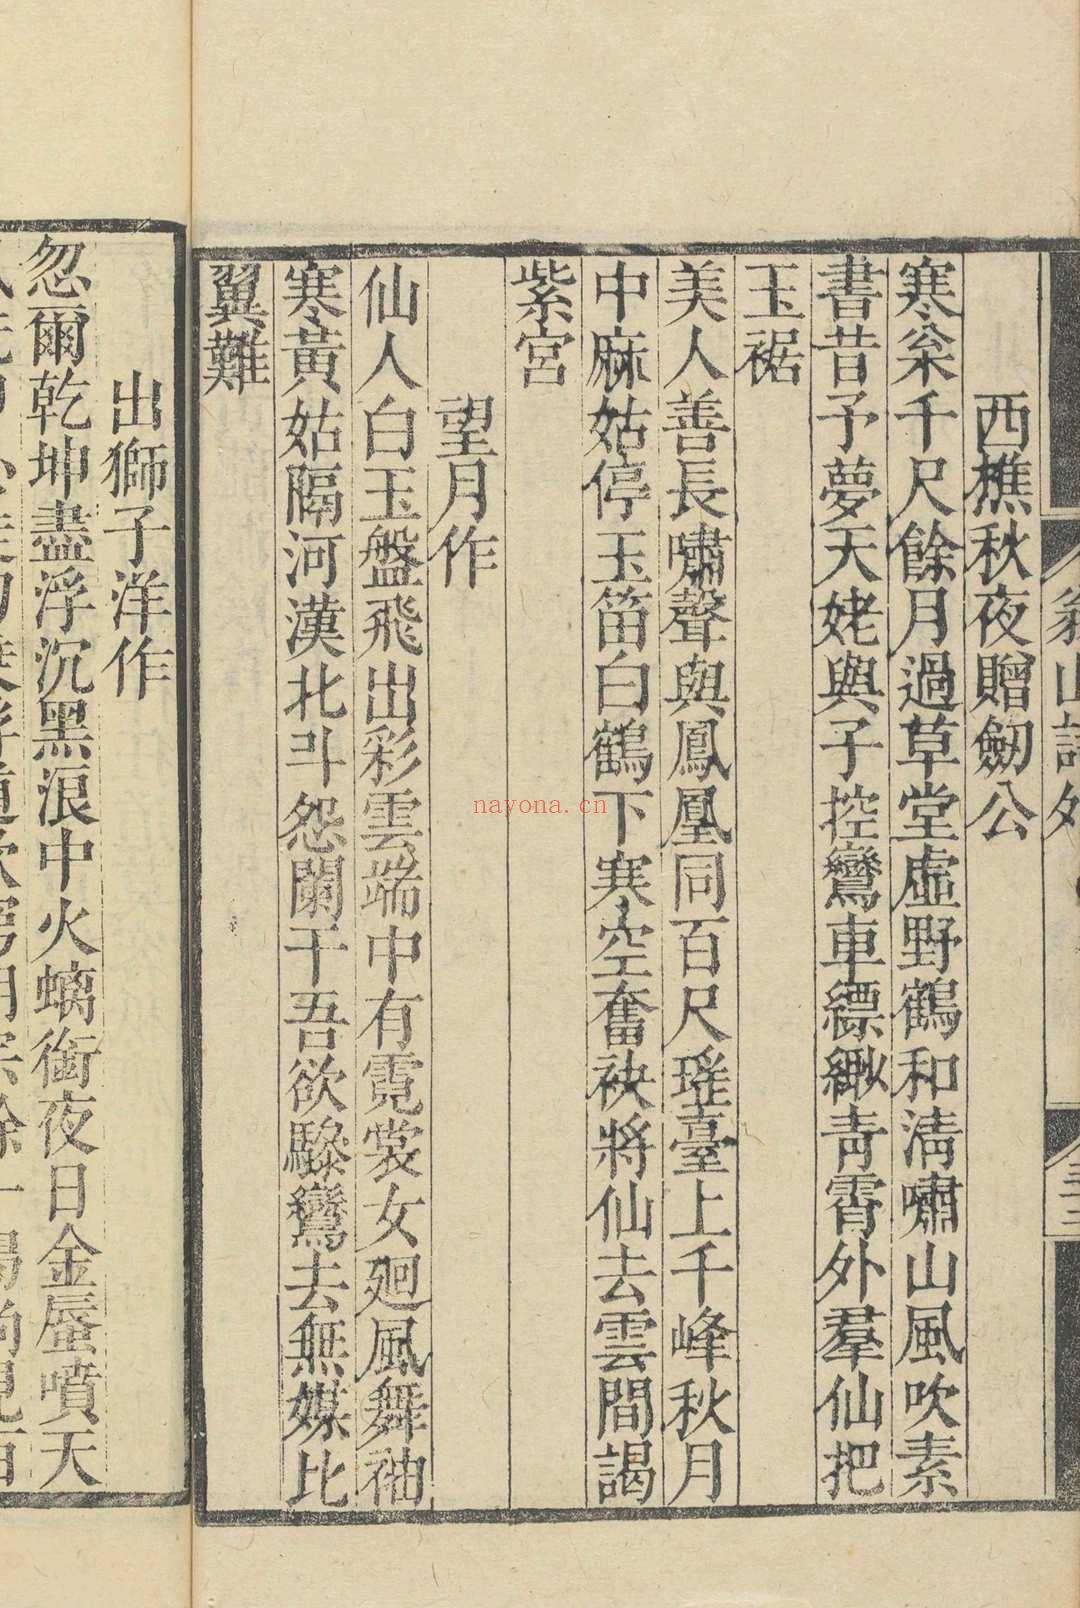 翁山詩外
三三
西樵秋夜贈劒公
寒桬千尺餘月過草堂虛野鶴和淸嘯山風吹素
書昔予夢天姥與子控鸞車縹緲靑霄外羣仙把
玉裾
美人善長嘯聲與鳳凰同百尺瑤臺上千峰秋月
中麻姑停玉笛白鶴下寒空奮袂將仙去雲間謁
紫宮
望月作
仙人白玉盤飛出彩雲端中有霓裳女廻風舞袖
寒黃姑隔河漢北斗怨闌干吾欲驂鸞去無媒比
翼難
出獅子洋作
忽爾乾坤盡浮沉黑浪中火螭銜夜日金蜃噴天
nayona.cn